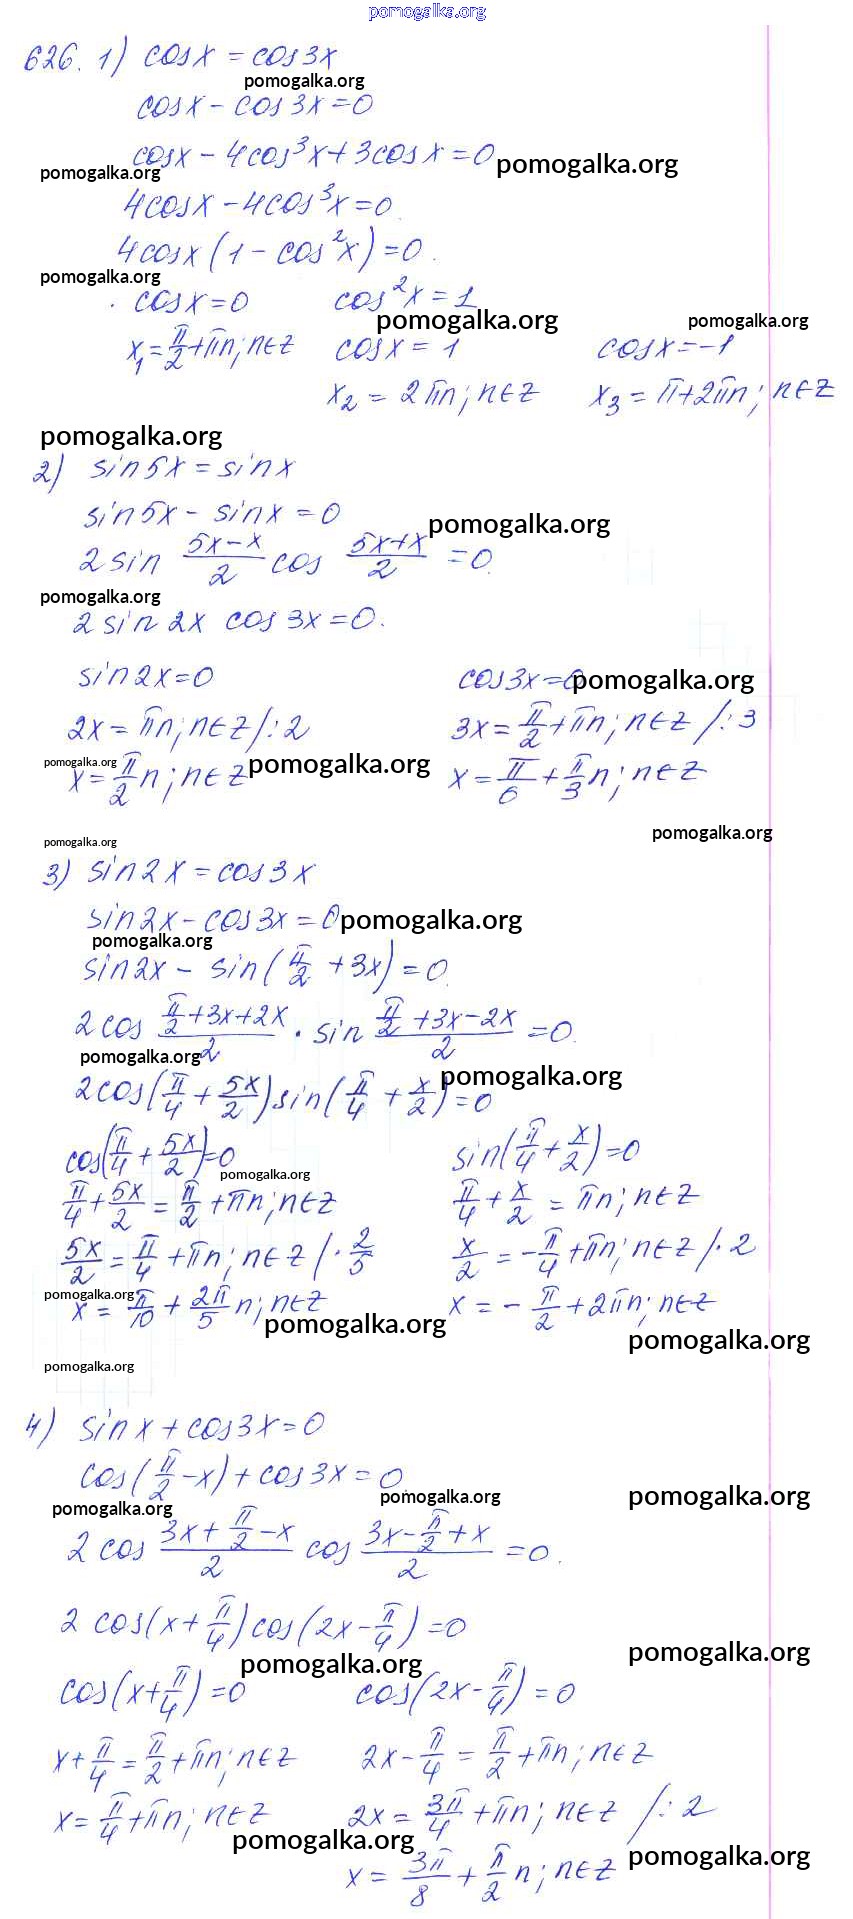 pomogalka.org
626. 1) cosx = cos3x
pomogalka.org
cosx - cos3x = 0
cosx - 4cos³x + 3cosx = 0 pomogalka.org
pomogalka.org
4cosx - 4cos³x = 0.
4cosx(1 - cos²x) = 0.
pomogalka.org
cosx = 0 cos²x = 1
pomogalka.org pomogalka.org
x₁ = π/2 + πn; n∈Z cosx = 1 cosx = -1
x₂ = 2πn; n∈Z x₃ = π + 2πn; n∈Z
pomogalka.org
2) sin5x = sinx
sin5x - sinx = 0
pomogalka.org
2 sin (5x-x)/2 cos (5x+x)/2 = 0.
pomogalka.org
2 sin 2x cos 3x = 0.
sin2x = 0 cos3x = 0 pomogalka.org
2x = πn; n∈Z /:2 3x = π/2 + πn; n∈Z /:3
pomogalka.org pomogalka.org
x = π/2 n; n∈Z x = π/6 + π/3 n; n∈Z
pomogalka.org
pomogalka.org
3) sin2x = cos3x
sin2x - cos3x = 0 pomogalka.org
pomogalka.org
sin2x - sin(π/2 + 3x) = 0.
2cos (π/2+3x+2x)/2 · sin (π/2+3x-2x)/2 = 0.
pomogalka.org
pomogalka.org
2cos(π/4 + 5x/2) sin(π/4 + x/2) = 0
cos(π/4 + 5x/2) = 0 sin(π/4 + x/2) = 0
pomogalka.org
π/4 + 5x/2 = π/2 + πn; n∈Z π/4 + x/2 = πn; n∈Z
5x/2 = π/4 + πn; n∈Z /· 2/5 x/2 = -π/4 + πn; n∈Z /· 2
pomogalka.org
x = π/10 + 2π/5 n; n∈Z x = - π/2 + 2πn; n∈Z
pomogalka.org pomogalka.org
pomogalka.org
4) sinx + cos3x = 0
cos(π/2 - x) + cos3x = 0.
pomogalka.org pomogalka.org pomogalka.org
2 cos (3x + π/2 - x)/2 cos (3x - π/2 + x)/2 = 0.
2 cos(x + π/4) cos(2x - π/4) = 0
pomogalka.org pomogalka.org
cos(x + π/4) = 0 cos(2x - π/4) = 0
x + π/4 = π/2 + πn; n∈Z 2x - π/4 = π/2 + πn; n∈Z
x = π/4 + πn; n∈Z 2x = 3π/4 + πn; n∈Z /:2
pomogalka.org pomogalka.org
x = 3π/8 + π/2 n; n∈Z